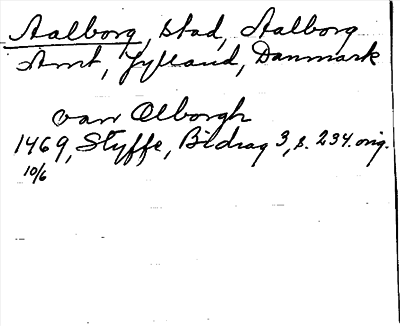 Aalborg, stad, Aalborg
Amt, Jylland, Danmark
van Olborgh
1469, Styffe, Bidrag 3, s. 234. orig.
10/6